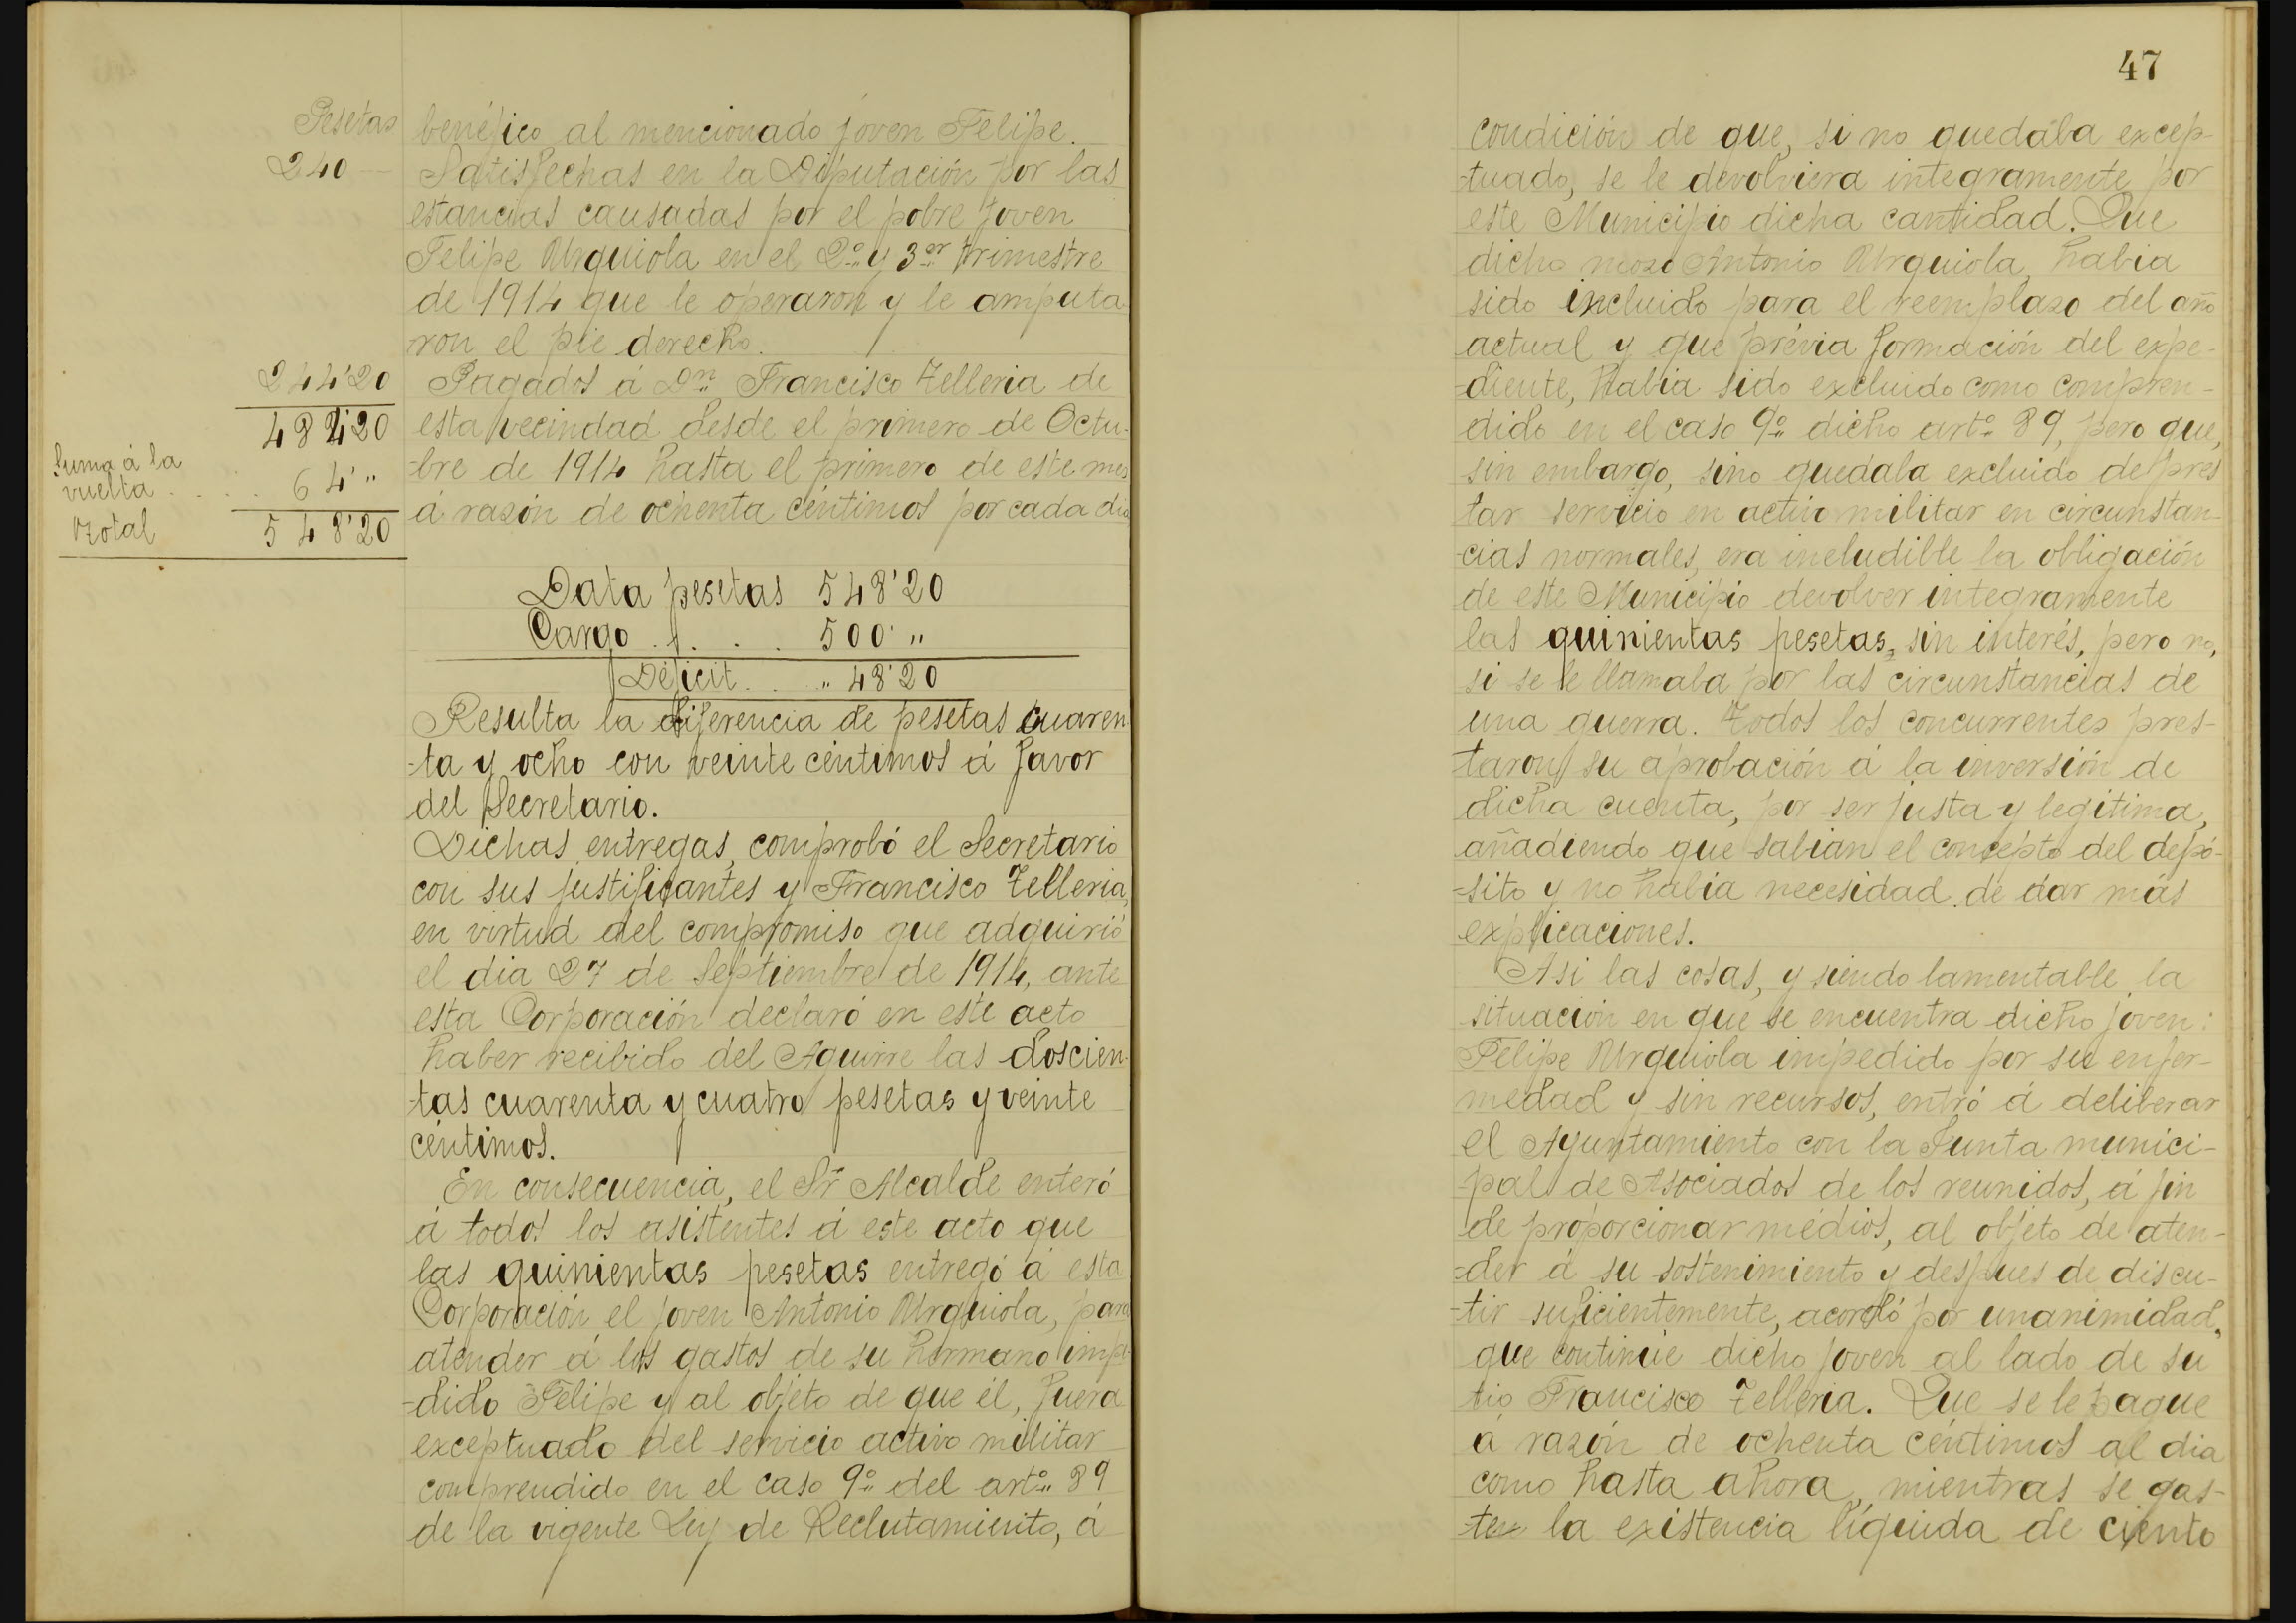 Pesetas
benéfico al mencionado joven Felipe.
240 — Satisfechas en la Diputación por las
estancias causadas por el pobre joven
Felipe Urquiola en el 2º y 3er trimestre
de 1914 que le operaron y le amputa
ron el pie derecho.
244'20 Pagados á Dn Francisco Telleria de
484'20 esta vecindad desde el primero de Octu-
-bre de 1914 hasta el primero de este mes
á razón de ochenta céntimos por cada dia
Suma á la
vuelta . . . . 64'"
Total 548'20
Data pesetas 548'20
Cargo . . . . 500'"
Déficit . . " 48'20
Resulta la diferencia de pesetas cuaren
-ta y ocho con veinte céntimos á favor
del Secretario.
Dichas entregas, comprobó el Secretario
con sus justificantes y Francisco Telleria,
en virtud del compromiso que adquirió
el dia 27 de Septiembre de 1914, ante
esta Corporación declaró en este acto
haber recibido del Aguirre las doscien-
-tas cuarenta y cuatro pesetas y veinte
céntimos.
En consecuencia, el Sr Alcalde enteró
á todos los asistentes á este acto que
las quinientas pesetas entregó á esta
Corporación el joven Antonio Urquiola, para
atender á los gastos de su hermano impe-
-dido Felipe y al objeto de que él, fuera
exceptuado del servicio activo militar
comprendido en el caso 9º del artº 89
de la vigente Ley de Reclutamiento, á
47
condición de que, si no quedaba excep-
-tuado, se le devolviera integramente por
este Municipio dicha cantidad. Que
dicho mozo Antonio Urquiola, habia
sido incluido para el reemplazo del año
actual y que prévia formación del expe-
-diente, habia sido excluido como compren-
dido en el caso 9º dicho artº 89, pero que,
sin embargo, sino quedaba excluido de pres
tar servicio en activo militar en circunstan-
-cias normales, era ineludible la obligación
de este Municipio devolver integramente
las quinientas pesetas, sin interés, pero no,
si se le llamaba por las circunstancias de
una guerra. Todos los concurrentes pres-
taron su aprobación á la inversión de
dicha cuenta, por ser justa y legítima,
añadiendo que sabian el concepto del depó-
-sito y no habia necesidad de dar más
explicaciones.
Asi las cosas, y siendo lamentable la
situación en que se encuentra dicho joven:
Felipe Urquiola impedido por su enfer-
medad y sin recursos, entró á deliberar
el Ayuntamiento con la Junta munici-
-pal de Asociados de los reunidos, á fin
de proporcionar médios, al objeto de aten-
-der á su sostenimiento y despues de discu-
-tir suficientemente, acordó por unanimidad,
que continúe dicho joven al lado de su
tio Francisco Telleria. Que se le pague
á razón de ochenta céntimos al dia
como hasta ahora, mientras se gas-
-te la existencia líquida de ciento